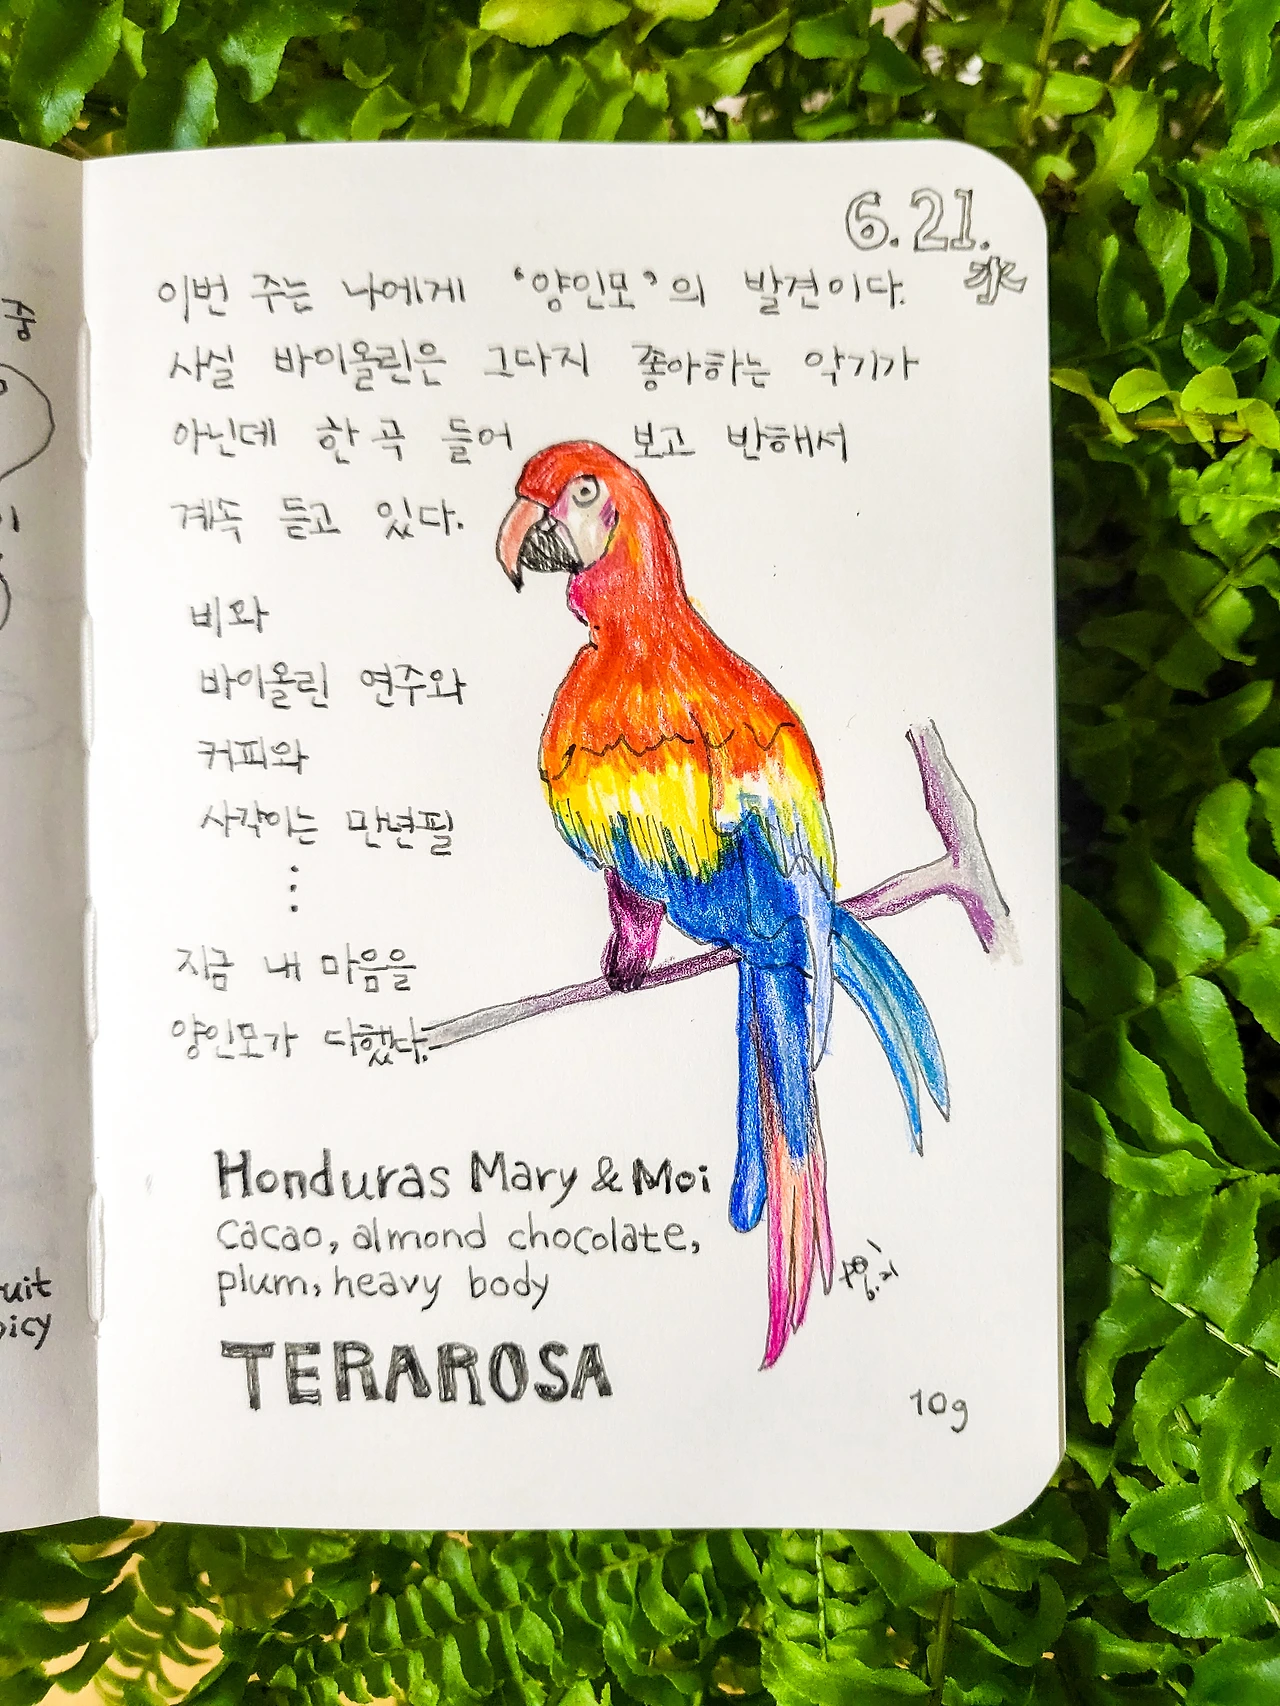 6.21.
水
이번 주는 나에게 '양인모'의 발견이다.
사실 바이올린은 그다지 좋아하는 악기가
아닌데 한 곡 들어 보고 반해서
계속 듣고 있다.
비와
바이올린 연주와
커피와
사각이는 만년필
⋮
지금 내 마음을
양인모가 다했다.
Honduras Mary & Moi
Cacao, almond chocolate,
plum, heavy body
TERAROSA
6.21
10g
중
이
uit
icy